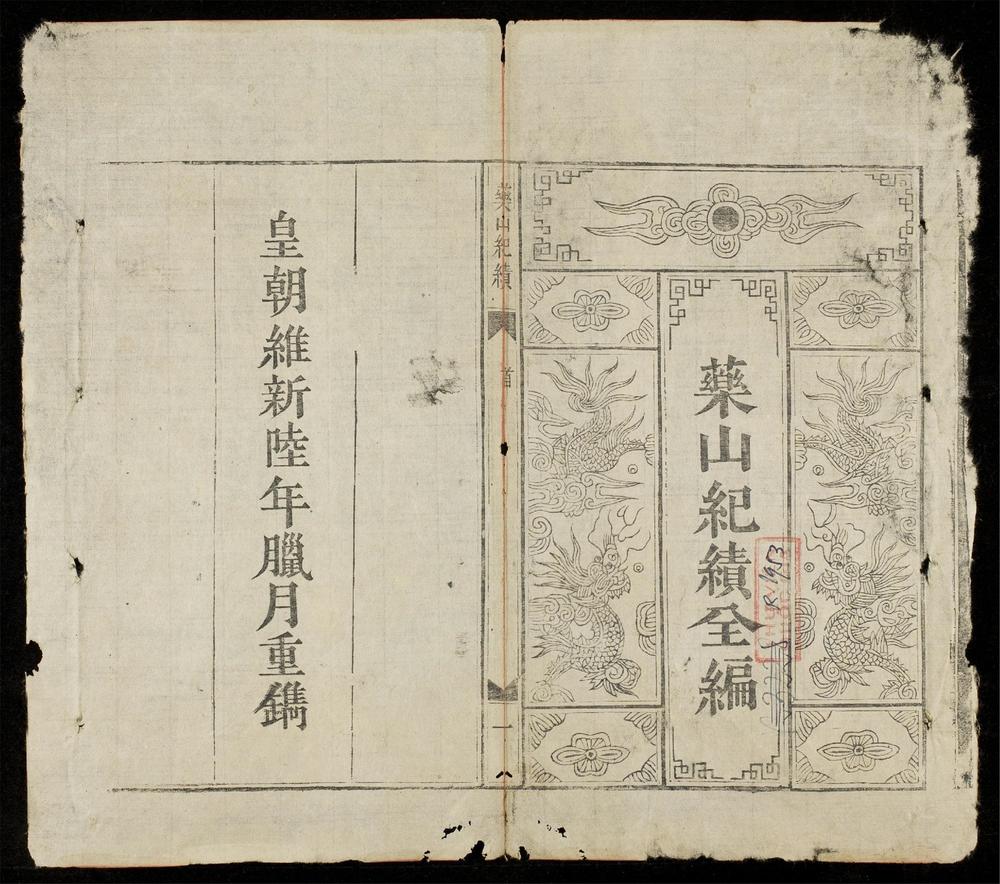 藥山紀績全編
R.1953
藥山紀績
首
一
皇朝維新陸年臘月重鐫